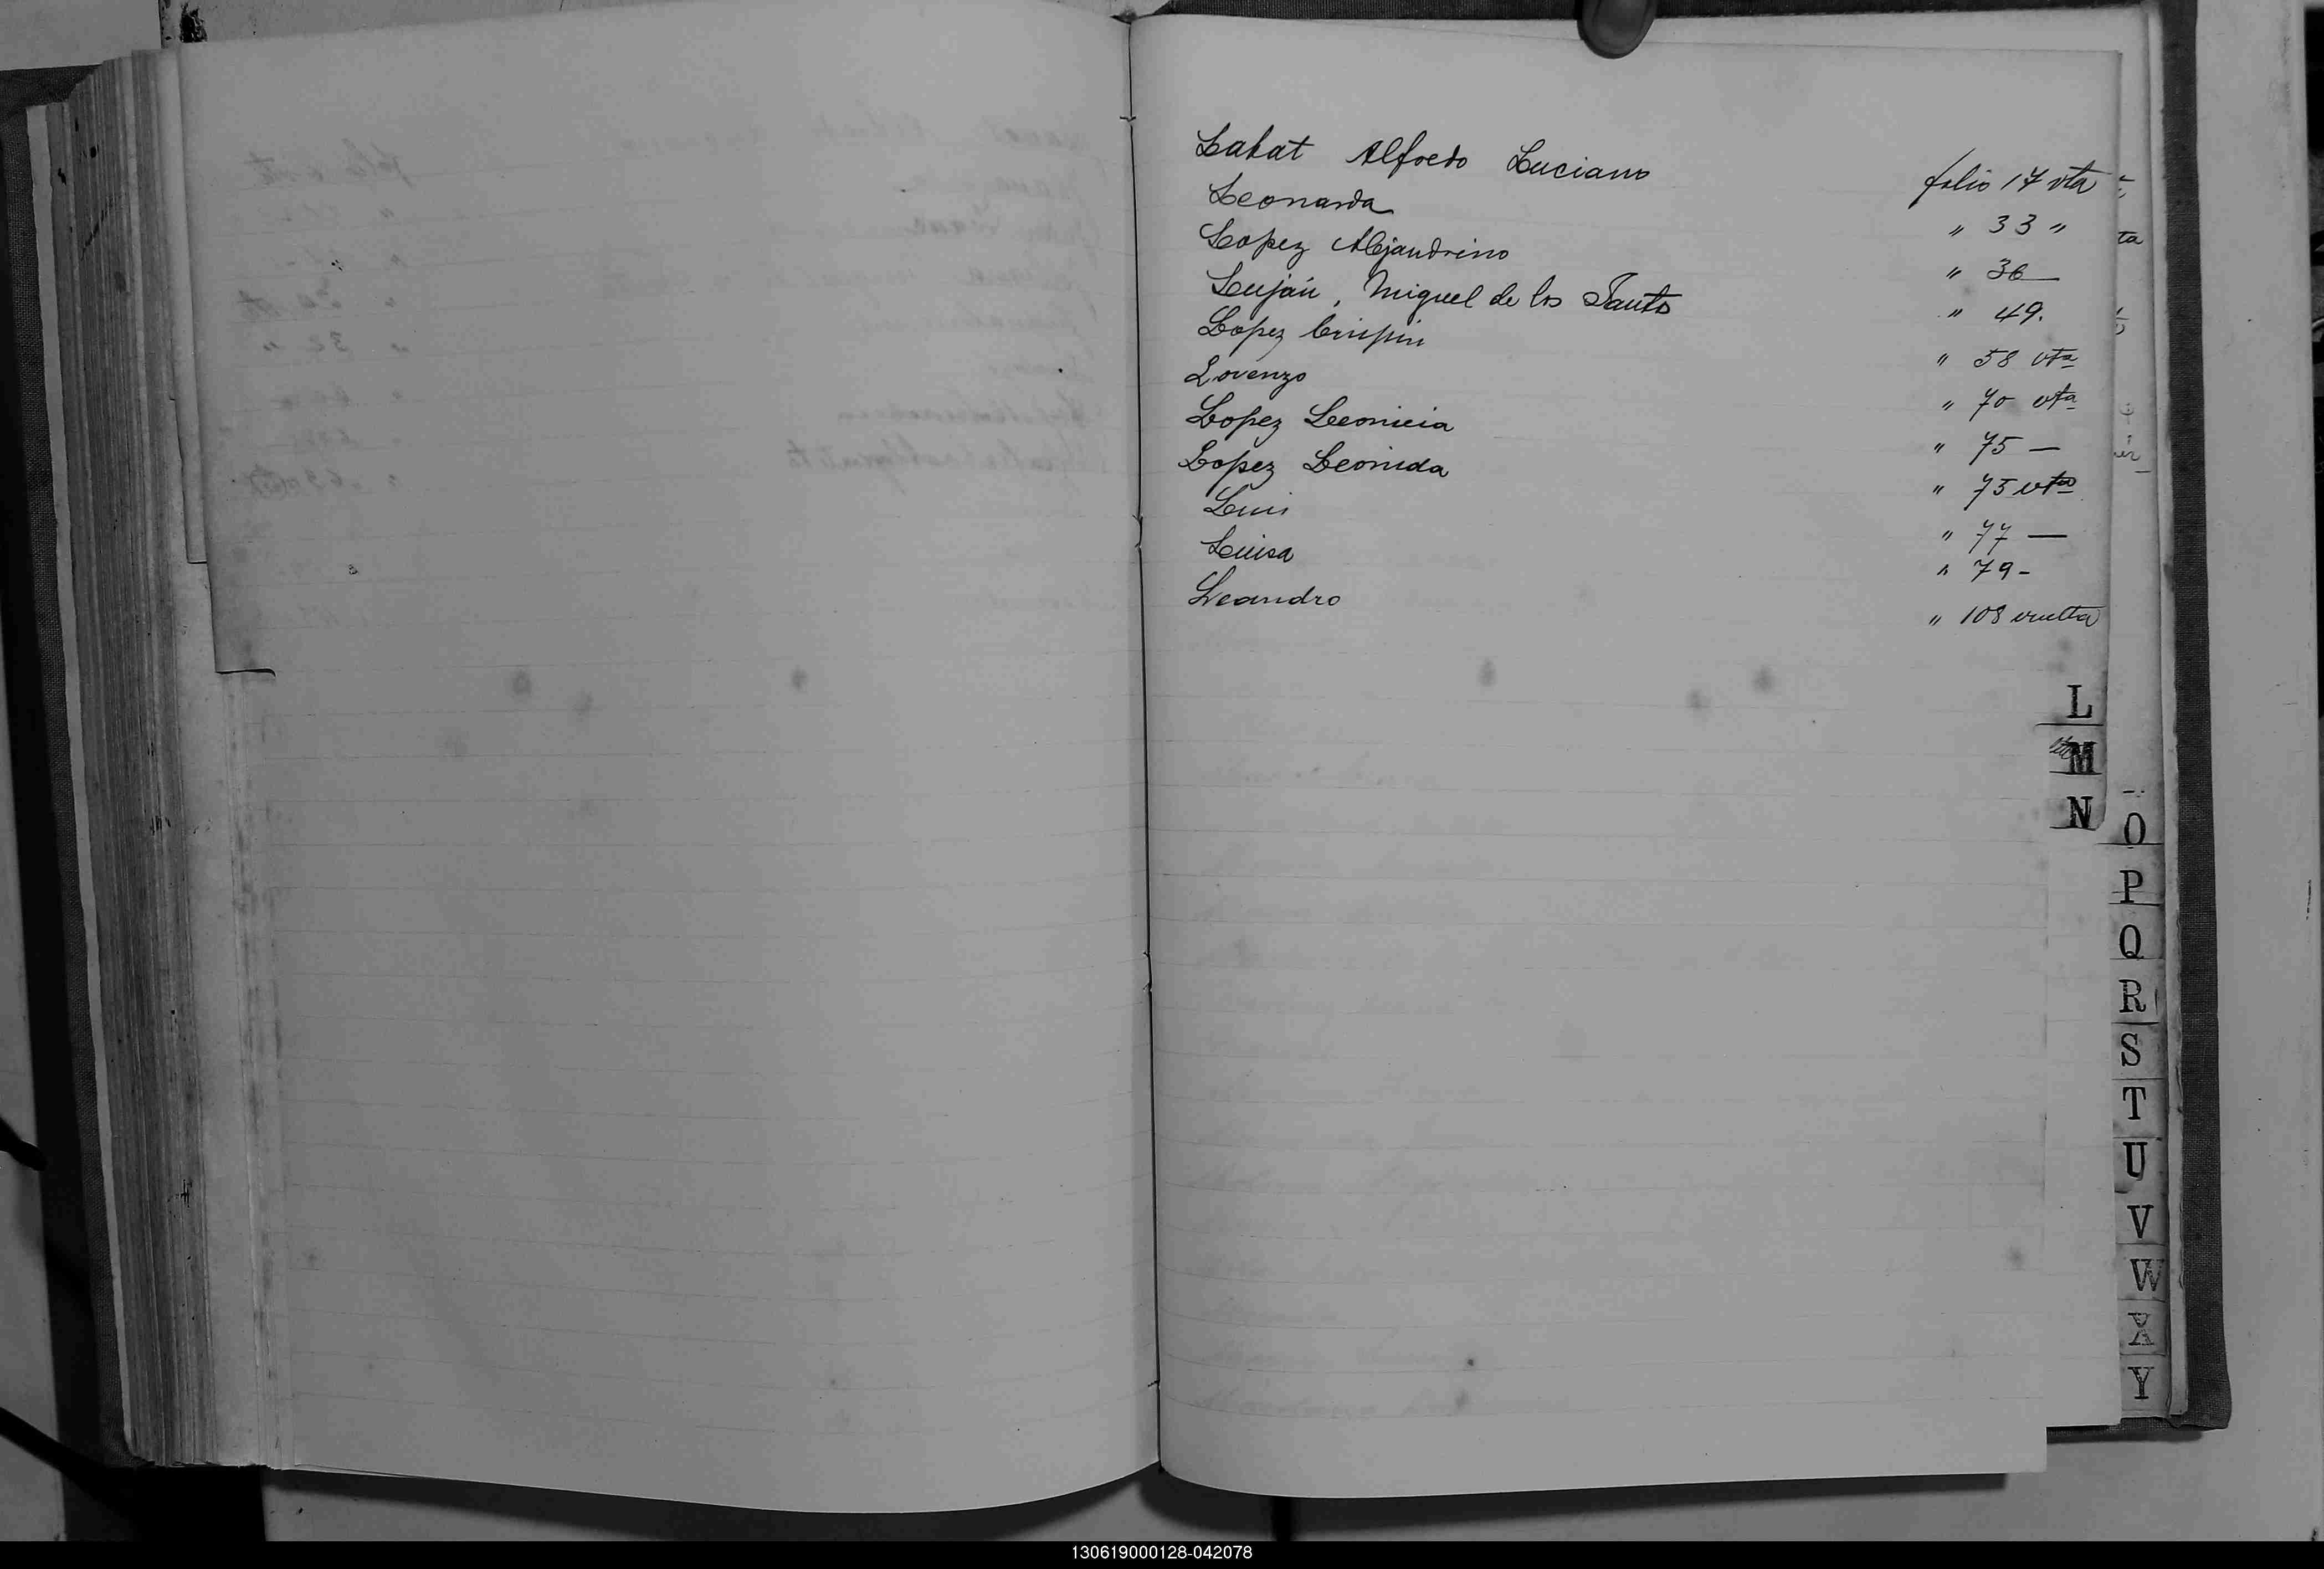 Labat Alfredo Luciano folio 17 vta
Leonarda " 33 "
Lopez Alejandrino " 36 —
Luján, Miguel de los Santos " 49.
Lopez Crispin " 58 vta
Lorenzo " 70 vta
Lopez Leonicia " 75 —
Lopez Leonida " 75 vta
Luis " 77 —
Luisa " 79 -
Leandro " 108 vuelta
L
M
N
O
P
Q
R
S
T
U
V
W
X
Y
130619000128-042078